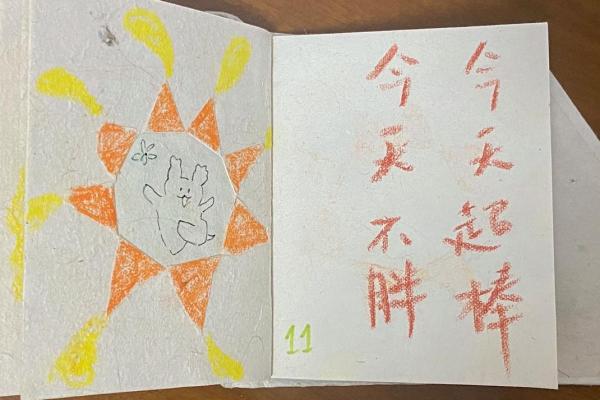 今天超棒
今天不胖
11